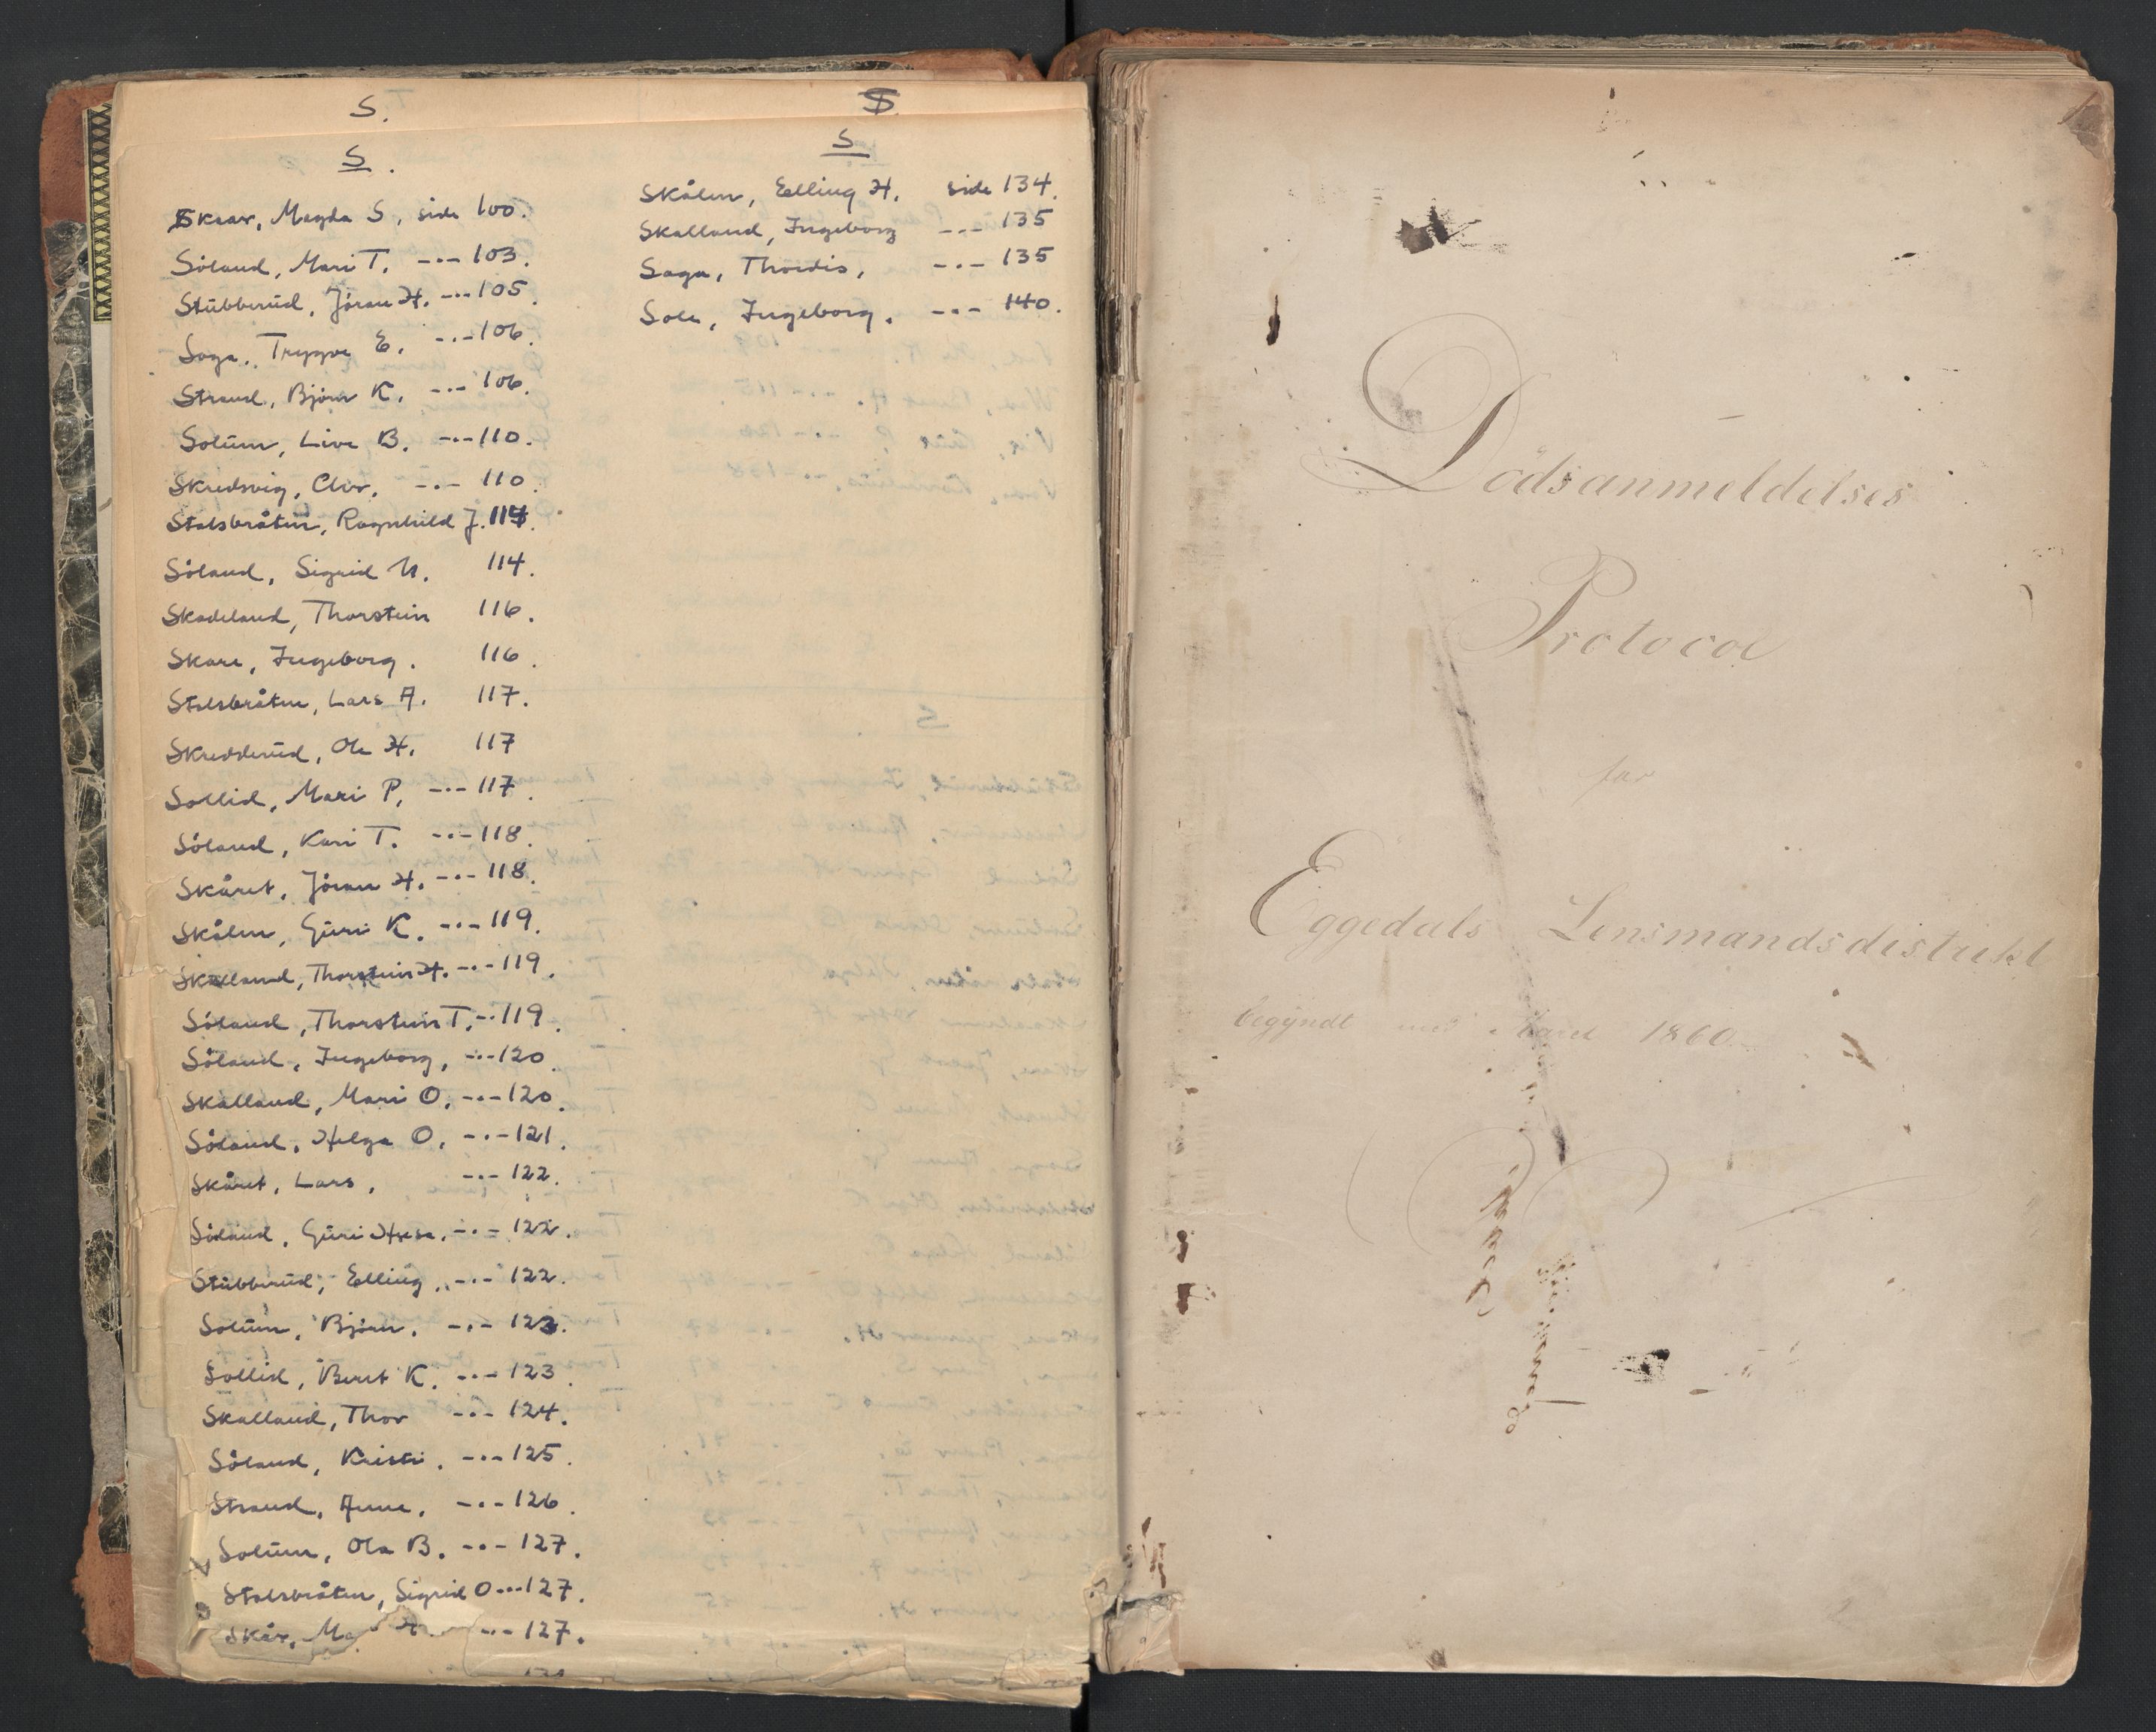 S.
S.
Skaar, Magda S, side 100.
Söland, Mari T. -·- 103.
Stübberüd, Jöran H. -·- 105.
Saga, Trygve E. -·- 106.
Strand, Björn K. -·- 106.
Solüm, Live B. -·- 110.
Skredsvig, Chr. -·- 110.
Stalsbråten, Ragnhild J. 114.
Söland, Sigrid N. 114.
Skadeland, Thorstein 116.
Skare, Ingeborg. 116.
Stalsbråten, Lars A. 117.
Skredderüd, Ole H. 117
Sollid, Mari P. -·- 117.
Söland, Kari T. -·- 118.
Skåret, Jöran H. -·- 118.
Skålen, Güri K. -·- 119.
Skalland, Thorstein H. -·- 119.
Söland, Thorstein T. -·- 119.
Söland, Ingeborg, -·- 120.
Skalland, Mari O. -·- 120.
Söland, Helga O. -·- 121.
Skåret, Lars, -·- 122.
Söland, Güri -·- 122.
Stübberüd, Elling, -·- 122.
Solüm, Björn. -·- 123.
Sollid, Berit K. -·- 123.
Skalland, Thor -·- 124.
Söland, Kristi. -·- 125.
Strand, Anne. -·- 126.
Solüm, Ola B. -·- 127.
Stalsbråten, Sigrid O -·- 127.
Skår, H. -·- 127.
S.
S
Skålen, Elling H. side 134.
Skalland, Ingeborg -·- 135
Saga, Thordis, -·- 135
Sole, Ingeborg. -·- 140.
Dödsanmeldelses
Protocol
for
Eggedals Lensmandsdistrikt
begyndt med Aaret 1860.